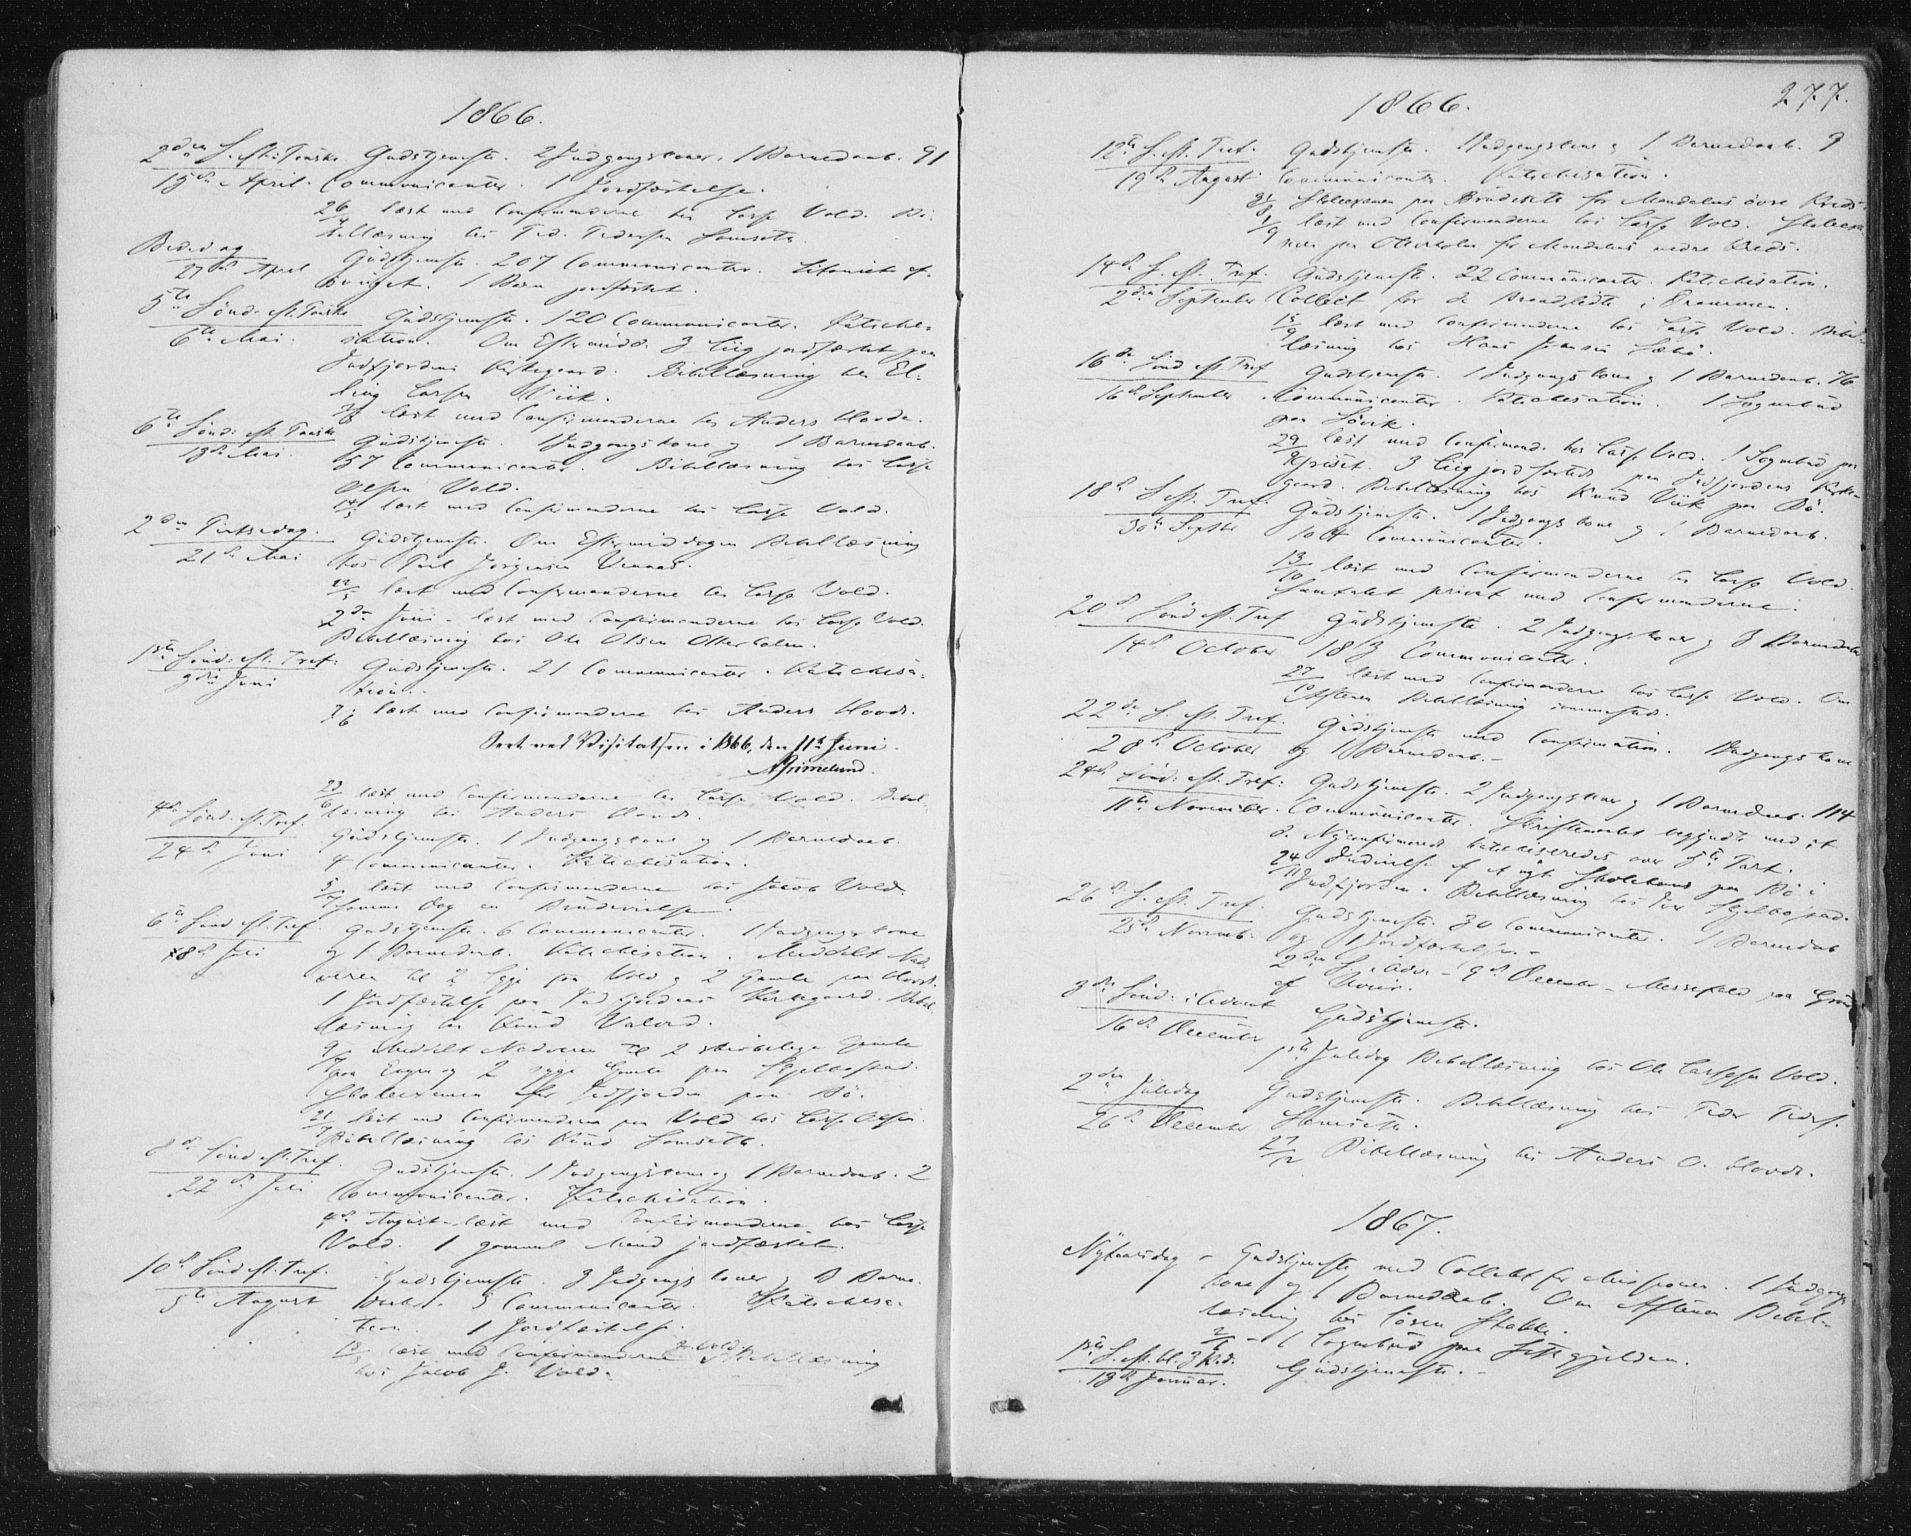 1866.
2den S. eft: Paaske Gudstjeneste. 2 Indgangskoner. 1 Barnedaab. 91
15de April. Communicanter. 1 Jordfæstelse.
26/4 læst med Confirmanderne hos Lars Vold. Bi-
bellæsning hos Ped. Pedersen
Bededag Gudstjeneste. 207 Communicanter. Litaniet af-
27de April 1 Barn jordfæstet.
5te Sønd. eft. Paaske Gudstjeneste. 120 Communicanter. Katiche-
6te Mai. sation. Om Eftermidd. 3 Liig jordfæstet paa
Indfjordens Kirkegaard. Bibellæsning hos El-
ling Larsen Viik.
læst med Confirmanderne hos Anders Hovde.
6te Sønd: eft. Paaske Gudstjeneste. 1 Indgangskone og 1 Barnedaab.
13de Mai. 57 Communicanter. Bibellæsning hos Lars
Olsen Vold.
14/5 læst med Confirmanderne hos Lars Vold.
2den Pintsedag. Gudstjeneste. Om Eftermiddagen Bibellæsning
21de Mai hos Jørgensen
22/5 læst med Confirmanderne hos Lars Vold.
2den Juni - læst med Confirmanderne hos Lars Vold.
Bibellæsning hos Ole Olsen Otterholm.
1ste Sønd: eft. Tref: Gudstjeneste. 21 Communicanter. Katichisa-
3die Juni tion.
7/6 læst med Confirmanderne hos Anders Hovde.
Seet ved Visitatsen i 1866, den 11te Juni.
AGrimelund.
23/6 læst med Confirmanderne hos Lars Vold. Bibel-
læsning hos Anders Hovde.
4de Sønd: eft. Tref. Gudstjeneste. 1 Indgangskone og 1 Barnedaab.
24de Juni 4 Communicanter. Katichisation.
5/7 læst med Confirmanderne hos Jacob Vold.
Samme Dag en Brudevielse.
6te Sønd eft. Tref. Gudstjeneste. 6 Communicanter. 1 Indgangskone
8de Juli og 1 Barnedaab. Katichisation. Meddelt Nad-
veren til 2 Syge paa Vold og 2 Gamle paa Hovde.
1 Jordfæstelse paa Indfjordens Kirkegaard. Bibel-
læsning hos Knud
9/7 Meddelt Nadveren til 2 skrøbelige Gamle
paa og 2 syge Gamle paa Skjelbostad.
Skoleexamen for Indfjorden paa Bø.
21/7 læst med Confirmanderne paa Vold hos Lars Olsen.
Bibellæsning hos Knud
8de Sønd eft. Tref. Gudstjeneste. 1 Indgangskone og 1 Barnedaab. 2
22de Juli Communicanter. Katichisation.
4de August læst med Confirmanderne hos Lars
Vold. 1 gammel Mand jordfæstet.
10de Sønd eft. Tref. Gudstjeneste. 3 Indgangskoner og 3 Barne-
5te August daab. 3 Communicanter. Katichisa-
tion. 1 Jordfæstelse.
18/8 læst med Confirmanderne Bibellæsning
hos Jacob J. Vold.
1866. 277.
12te S. eft. Tref. Gudstjeneste. 1 Indgangskone og 1 Barnedaab. 9
19de August Communicanter. Katichisation.
31/8 Skoleexamen paa Brudesete for Mandalens øvre Kreds.
1/9 læst med Confirmanderne hos Lars Vold. Skoleexa-
men paa Otterholm for Mandalens nedre Kreds.
14de S. eft. Tref. Gudstjeneste. 22 Communicanter. Katichisation.
2den September Collect for de Brandlidte i Drammen.
15/9 læst med Confirmanderne hos Lars Vold. Bibel-
læsning hos Hans Jensen
16de Sønd eft. Tref Gudstjeneste. 1 Indgangskone og 1 Barnedaab. 76
16de September Communicanter. Katichisation. 1 Sognebud
paa
29/9 læst med Confirmand. hos Lars Vold. 1 Sognebud paa
3 Liig jordfæstet paa Indfjordens Kirke-
gaard. Bibellæsning hos Knud Viik paa Bø.
18de S eft. Tref. Gudstjeneste. 1 Indgangskone og 1 Barnedaab.
30te Septbr 104 Communicanter.
13/10 læst med Confirmanderne hos Lars Vold.
Samtalet privat med Confirmanderne.
20de Sønd eft. Tref Gudstjeneste. 2 Indgangskoner og 3 Barnedaab
14de October 183 Communicanter.
27/10 læst med Confirmanderne hos Lars Vold. Om
Aftenen Bibellæsning sammesteds.
22de S. eft. Tref. Gudstjeneste med Confirmation. 1 Indgangskone
28de October og 1 Barnedaab.
24de Sønd: eft. Tref: Gudstjeneste. 2 Indgangskoner og 1 Barnedaab. 114
11te November. Communicanter. Skriftemaalet begyndte med at
de Nyconfirmerede katichiseredes over 5te Part.
24/11 Indvielse af et nyt Skolehuus paa Bø i
Indfjorden. Bibellæsning hos Iver Skjelbostad.
26de S. eft. Tref. Gudstjeneste. 30 Communicanter. 1 Barnedaab
25de Novemb. og 1 Jordfæstelse.
2den S. i Adv. - 9de December - Messefald paa Grund
af Uveir.
3die Sønd: i Advent Gudstjeneste.
16de December
1ste Juledag Bibellæsning hos Ole Larssen Vold.
2den Juledag Gudstjeneste. Bibellæsning hos Peder Peders.
26de December
27/12 Bibellæsning hos Anders O. Hovde.
1867.
Nytaarsdag - Gudstjeneste med Collekt for Missionen. 1 Indgangs-
kone og 1 Barnedaab. Om Aftenen Bibel-
læsning hos
1 Sognebud paa
1ste S. eft. hl. 3 K. d. Gudstjeneste.
13de Januar.